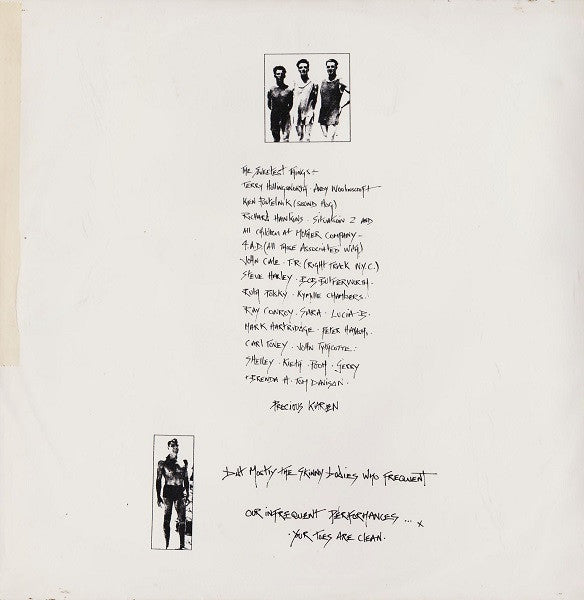 The Sweetest Things -
Terry Hollingsworth · Andy Woolnscroft
Ken (Second Hug)
Richard Hawkins · Situation 2 and
all children at Mother Company -
4.A.D. (all those associated with)
John Cale · T.R. (Right Track N.Y.C.)
Steve Harley · Bob Butterworth ·
Ruth Polsky · Kymme Chambers.
Ray Conroy · Sara · Lucia-B.
Mark Hartridge · Peter
Carl · John
Shelley · · Pooh · Gerry
+ Brenda H · Tom Davison.
Precious Karen
but mostly the skinny bodies who frequent
our infrequent performances ... x
· your toes are clean ·